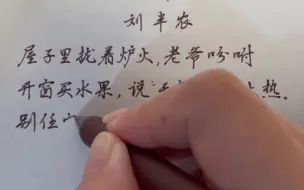 刘半农
屋子里拢着炉火,老爷吩咐
开窗买水果,说"天 热。
别任